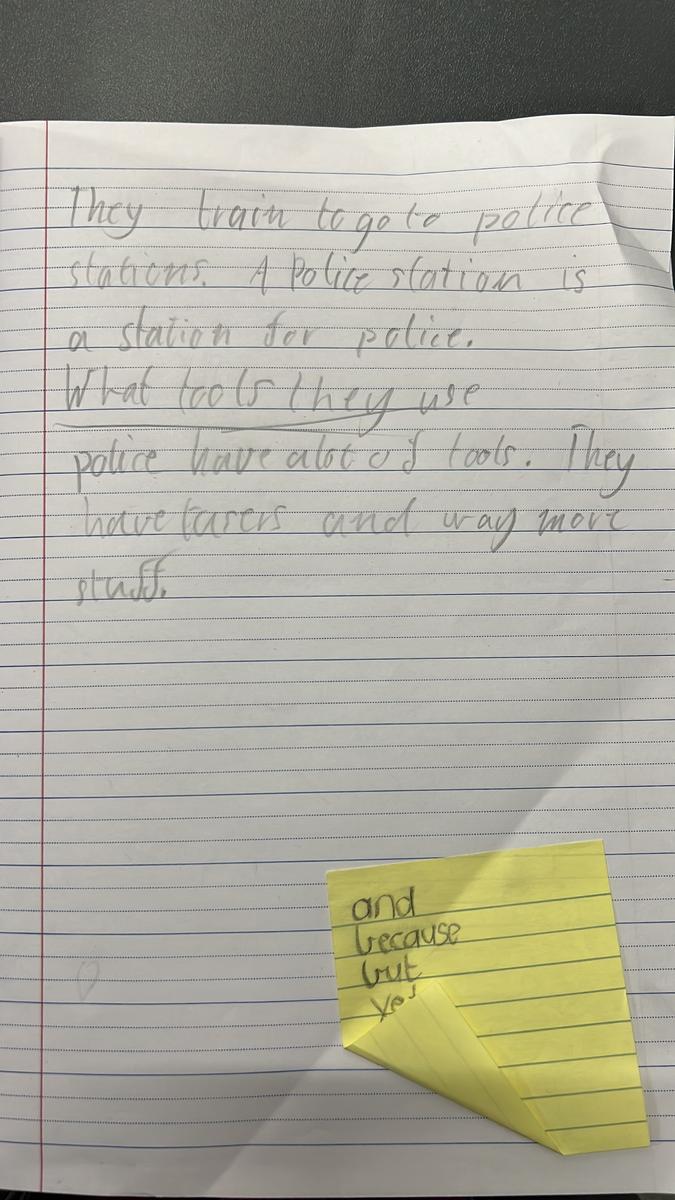 They train to go to police
stations. A Police station is
a station for police.
What tools they use
police have alot of tools. They
have tasers and way more
stuff.
and
because
but